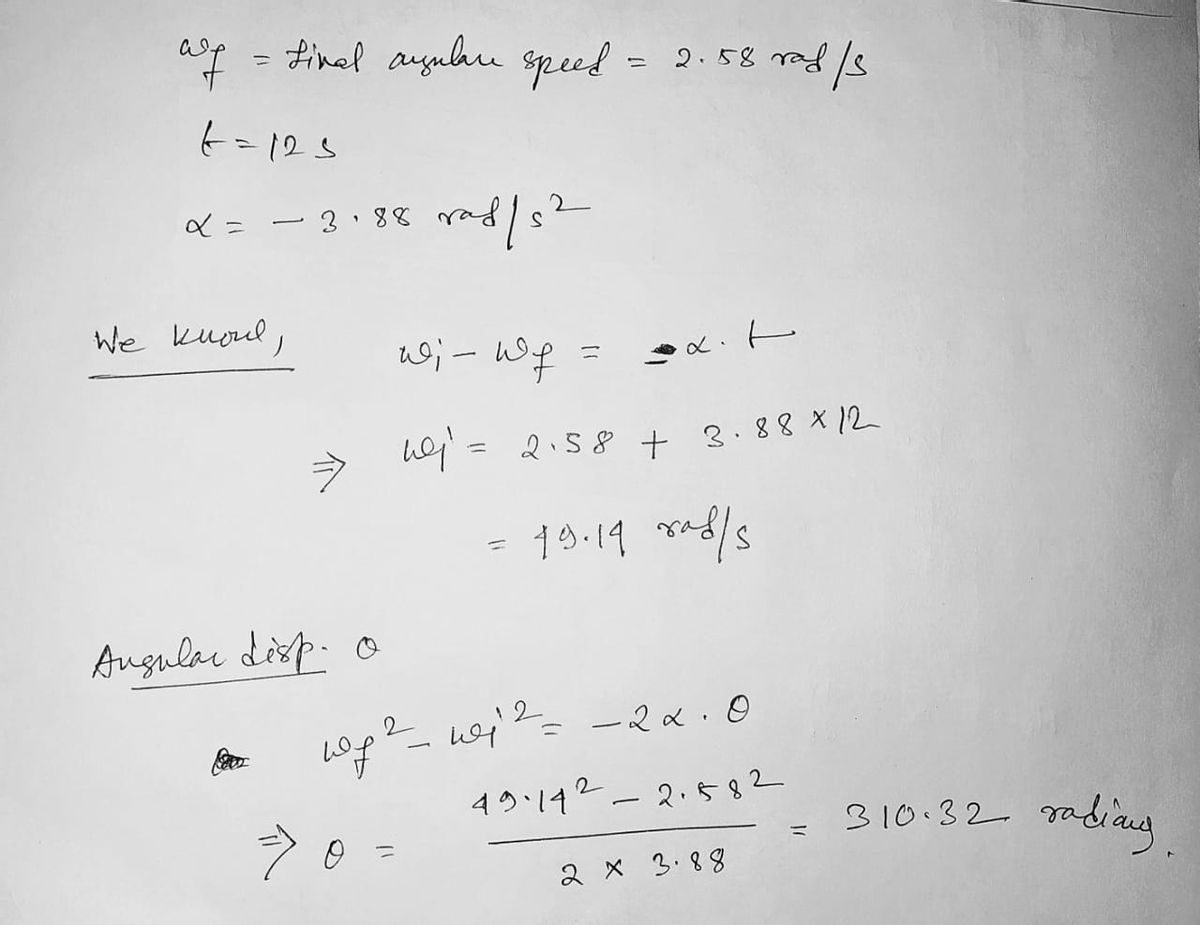 ωf = final angular speed = 2.58 rad/s
t = 12 s
α = - 3.88 rad/s²
We know,
ωi - ωf = - α.t
⇒ ωi = 2.58 + 3.88 × 12
= 49.14 rad/s
Angular disp. θ
ωf² - ωi² = -2α.θ
⇒ θ = (49.14² - 2.58²) / (2 × 3.88) = 310.32 radians.